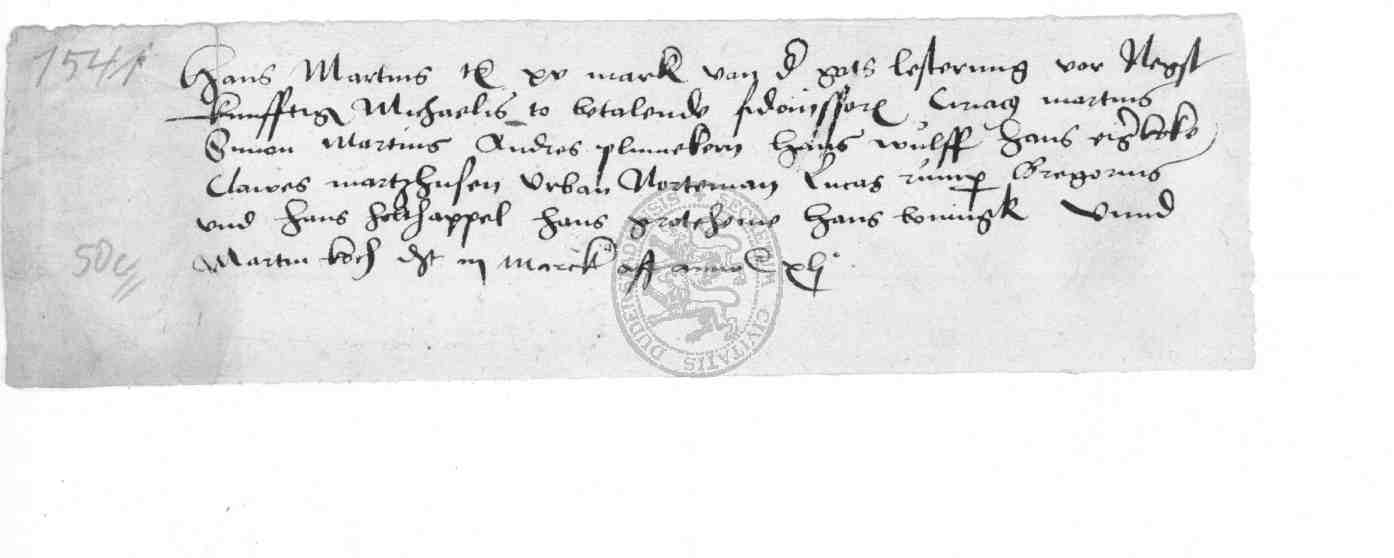 1541
Hans Martins xv mark van d gots lesterung vor Negst
kunfftig Michaelis to betalende fideiussores Ciriacg martins
Simon Martins Andres plunnekern Hans wulff Hans
Clawes martzhusen Urban Norteman Lucas rump Gregorius
vnd Hans holthappel Hans grotehenne Hans koningk Vnnd
Martin koch iij Marck aff anno xlj
50
SECRETVM CIVITATIS DUDENSTADENSIS